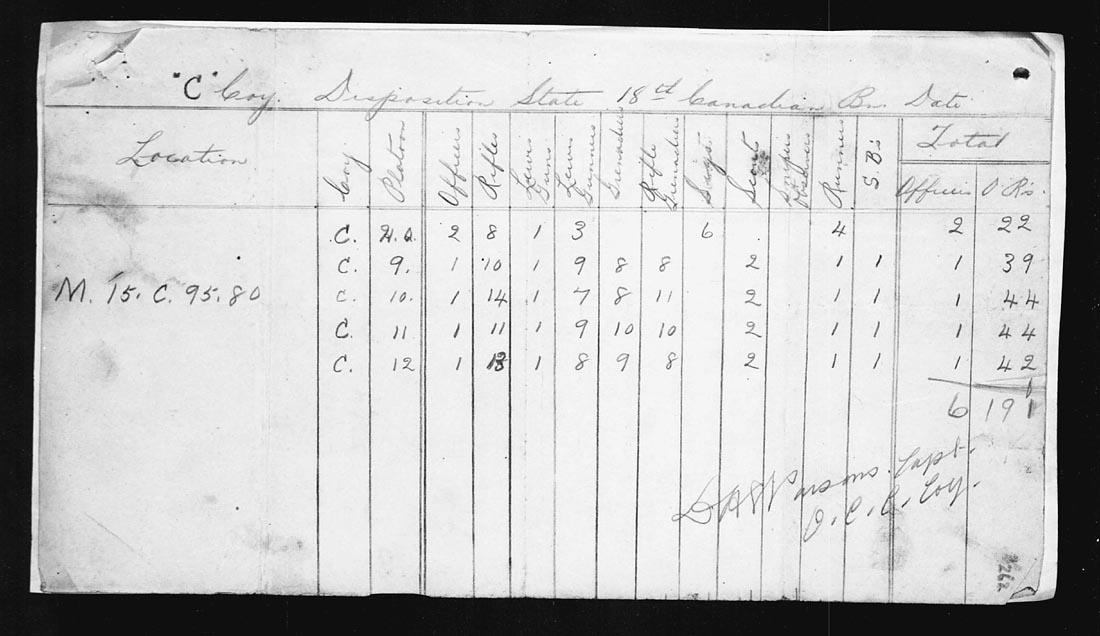 "C" Coy. Disposition State 18th Canadian Bn. Date
Location Coy. Platoon Officers Rifles Lewis Guns Lewis Gunners Grenadiers Rifle Grenadiers Sigs. Scouts Snipers Observers Runners S.B's Total
Officers O'R's.
C. H.Q. 2 8 1 3 6 4 2 22
C. 9. 1 10 1 9 8 8 2 1 1 1 39
M. 15. C. 95. 80 C. 10. 1 14 1 7 8 11 2 1 1 1 44
C. 11 1 11 1 9 10 10 2 1 1 1 44
C. 12 1 13 1 8 9 8 2 1 1 1 42
1
6 191
Capt.
O.C. C. Coy.
262